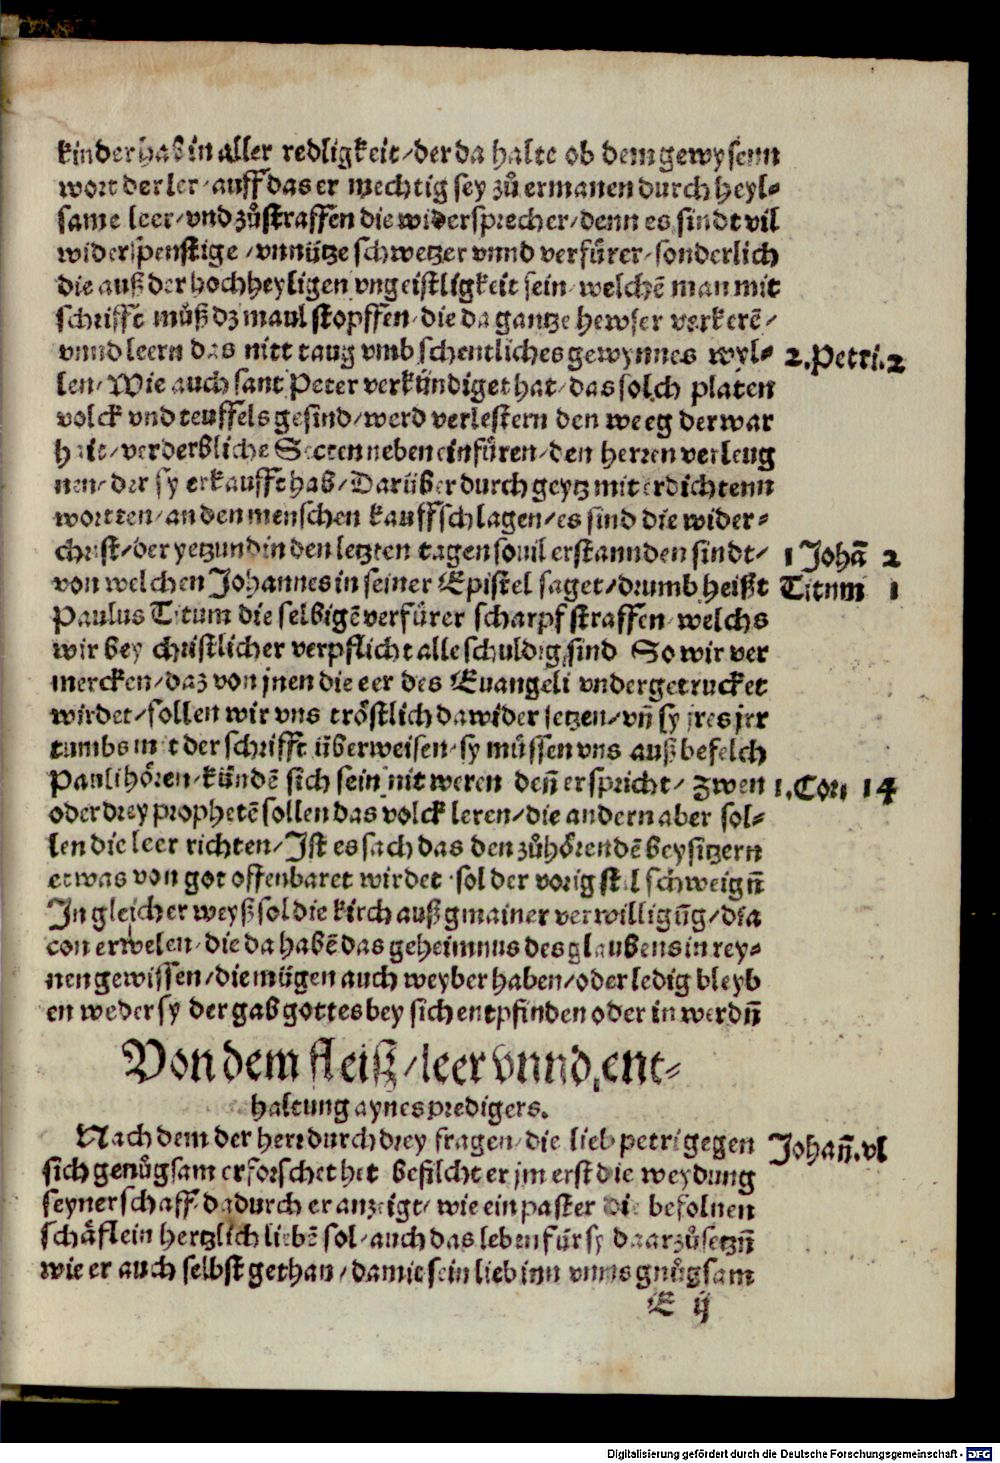 kinder hab in aller redligkeit/ der da halte ob dem gewysenn
wort der ler/ auff das er mechtig sey zů ermanen durch heyl-
same leer/ vnd zůstraffen die widersprecher/ denn es sindt vil
widerspenstige/ vnnütze schwetzer vnnd verfürer/ sonderlich
die auß der hochheyligen vngeistligkeit sein/ welchē man mit
schrifft můß dz maul stopffen/ die da gantze hewser verkerē/
vnnd leern das nitt taug vmb schentliches gewynnes wyl- 2.Petri.2
len/ Wie auch sant Peter verkündiget hat/ das solch platen
volck vnd teuffels gesind/ werd verlestern den weeg der war
heit/ verderbliche Secten neben einfüren/ den herren verleug
nen/ der sy erkaufft hab/ Darüber durch geytz mit erdichtenn
wortten/ an den menschen kauffschlagen/ es sind die wider-
christ/ der yetzund in den letzten tagen souil erstannden sindt/ 1 Johā 2
von welchen Johannes in seiner Epistel saget/ drumb heißt Titum 1
Paulus Titum die selbigē verfürer scharpf straffen/ welchs
wir bey christlicher verpflicht alle schuldig sind So wir ver
mercken/ daz von jnen die eer des Euangeli vndergetrucket
wirdet/ sollen wir vns tröstlich dawider setzen/ vn̄ sy jres jrr
tumbs mit der schrifft überweisen/ sy müssen vns auß befelch
Pauli hören/ kündē sich sein nit weren den̄ er spricht/ zwen 1.Cor; 14
oder drey prophetē sollen das volck leren/ die andern aber sol-
len die leer richten/ Ist es sach das den zůhörendē beysitzern
etwas von got offenbaret wirdet/ sol der vorig stil schweign̄
In gleicher weyß sol die kirch auß gmainer verwilligūg/ dia
con erwelen/ die da habē das geheimnus des glaubens in rey-
nen gewissen/ die mügen auch weyber haben/ oder ledig bleyb
en weder sy der gab gottes bey sich entpfinden oder in werdn̄
Von dem fleiß/ leer vnnd ent-
haltung aynes predigers.
Nach dem der herr durch drey fragen/ die lieb petri gegen Johan̄.vl
sich genůgsam erforschet het befilcht er jm erst die weydung
seyner schaff/ dadurch er anzeigt/ wie ein paster die befolnen
schäflein hertzlich liebē sol/ auch das leben für sy daar zůsetzn̄
wie er auch selbst gethan/ damit sein lieb inn vnns gnůgsam
E ij
Digitalisierung gefördert durch die Deutsche Forschungsgemeinschaft - DFG